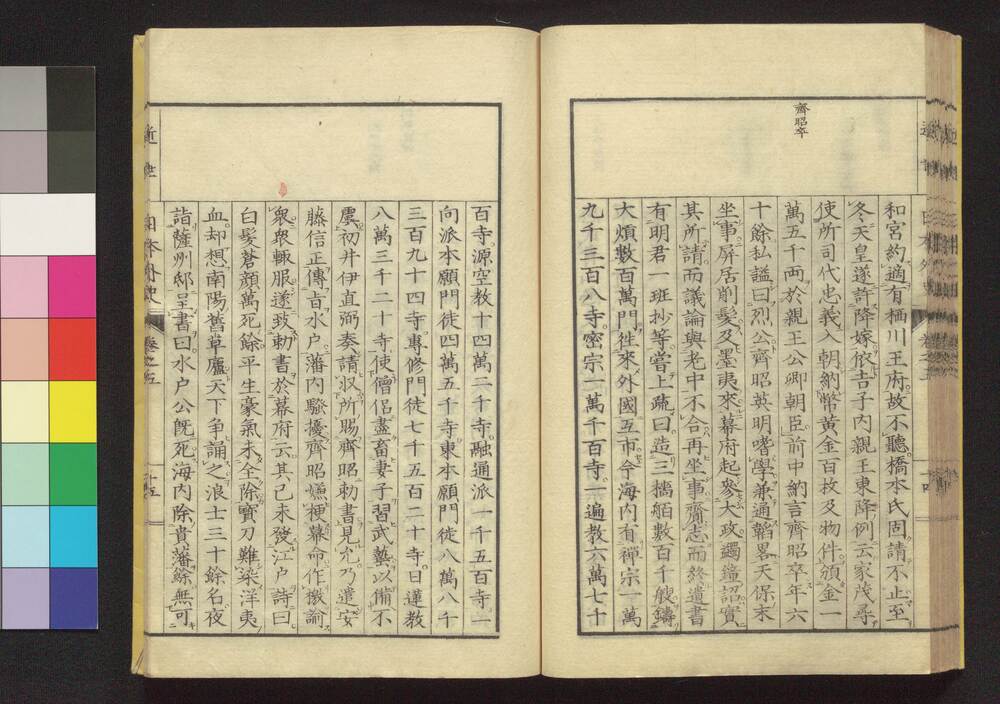 齊昭卒
和宮約適有栖川王府故不聽橋本氏固請不止至
冬天皇遂許降嫁俶吉子內親王東降例云家茂尋
使所司代忠義入朝納幣黃金百枚及物件頒金一
萬五千両於親王公卿朝臣前中納言齊昭卒年六
十餘私謚曰烈公齊昭英明嗜學兼通韜畧天保末
坐事屏居削髮及墨夷來幕府起參大政蠲鐘詔實
其所請而議論與老中不合再坐事齎志而終遺書
有明君一班抄等嘗上疏曰造三檣舶數百千艘鑄
大熕數百萬門徃來外國互市今海內有禪宗一萬
九千三百八寺密宗一萬千百寺一遍教六萬七千
百寺源空教十四萬二千寺融通派一千五百寺一
向派本願門徒四萬五千寺東本願門徒八萬八千
三百九十四寺專修門徒七千五百二十寺日蓮教
八萬三千二十寺使僧侶盡畜妻子習武藝以備不
虞初井伊直弼奏請収所賜齊昭勅書見允乃遣安
藤信正傳旨水户藩內騷擾齊昭嫌梗幕命作檄諭
衆衆輙服遂致勅書於幕府云其己未發江户詩曰
白髮蒼顏萬死餘平生豪氣未全除寶刀難染洋夷
血却想南陽舊草廬天下争誦之浪士三十餘名夜
詣薩州邸呈書曰水户公旣死海內除貴藩餘無可
近世日本外史 卷之五 十五